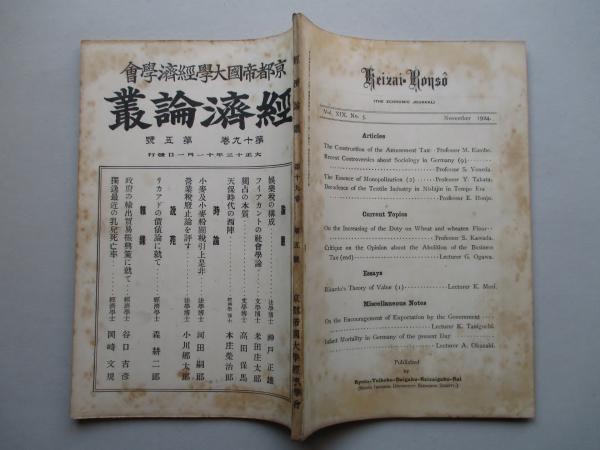 京都帝國大學經濟學會
經濟論叢
第十九卷 第五號
大正十三年十一月一日發行
論叢
娯樂稅の構成 法學博士 神戸正雄
フィアカントの社會學論 文學博士 米田庄太郎
獨占の本質 文學博士 高田保馬
天保時代の西陣 本庄榮治郎
時論
小麥及小麥粉關稅引上是非 法學博士 河田嗣郎
營業稅廢止論を評す 法學士 小川郷太郎
說苑
リカアドの價値論に就て 經濟學士 森耕二郎
雜錄
政府の輸出貿易振興策に就て 經濟學士 谷口吉彦
獨逸最近の乳兒死亡率 經濟學士 岡崎文規
經濟論叢 第十九卷 第五號 京都帝國大學經濟學會
Keizai-Ronsô
(THE ECONOMIC JOURNAL)
Vol. XIX, No. 5. November 1924.
Articles
The Construction of the Amusement Tax Professor M. Kambe.
Recent Controversies about Sociology in Germany (9)
Professor S. Yoneda.
The Essence of Monopolization (2) Professor Y. Takata.
Decadence of the Textile Industry in Nishijin in Tempo Era
Professor E. Honjo.
Current Topics
On the Increasing of the Duty on Wheat and wheaten Flour
Professor S. Kawada.
Critique on the Opinion about the Abolition of the Business
Tax (end) Lecturer G. Ogawa.
Essays
Ricardo's Theory of Value (1) Lecturer K. Mori.
Miscellaneous Notes
On the Encouragement of Exportation by the Government
Lecturer K. Taniguchi.
Infant Mortality in Germany of the present Day
Lecturer A. Okazaki.
Published
by
Kyoto-Teikoku-Daigaku-Keizaigaku-Kai
(Kyoto Imperial University Economic Society)